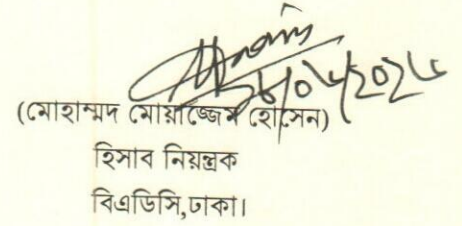 (মোহাম্মদ মোয়াজ্জেম হোসেন)
হিসাব নিয়ন্ত্রক
বিএডিসি,ঢাকা।